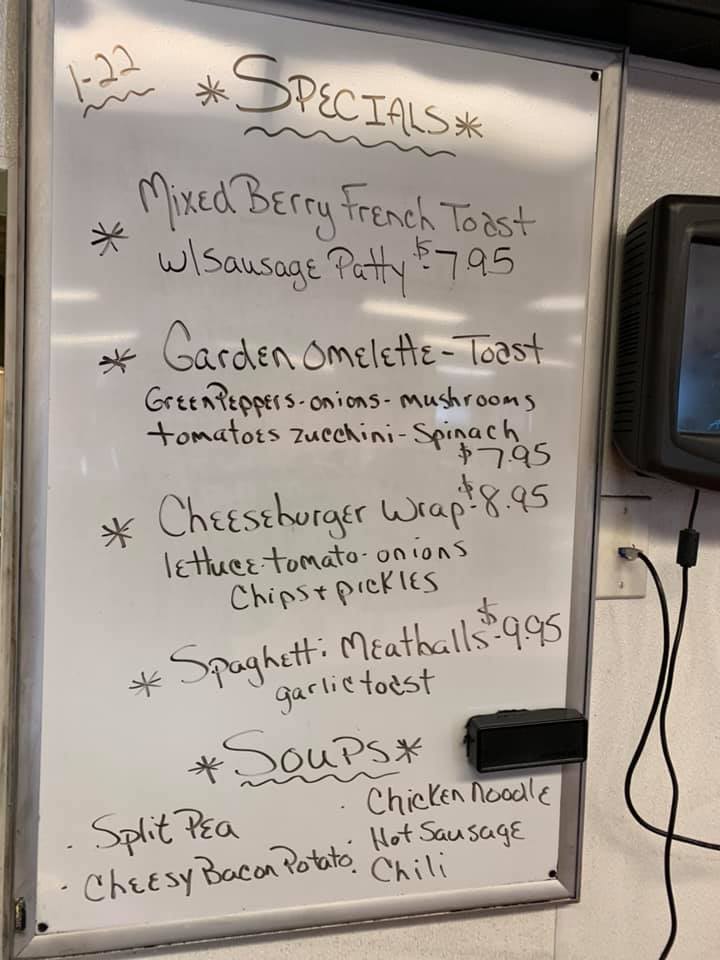 1-22
*Specials*
* Mixed Berry French Toast
w/Sausage Patty $7.95
* Garden Omelette - Toast
Green Peppers - onions - mushrooms
tomatoes zucchini - Spinach
$7.95
* Cheeseburger Wrap - $8.95
lettuce - tomato - onions
Chips + pickles
* Spaghetti Meatballs - $9.95
garlic toast
*Soups*
· Split Pea
· Cheesy Bacon Potato
· Chicken Noodle
· Hot Sausage
· Chili